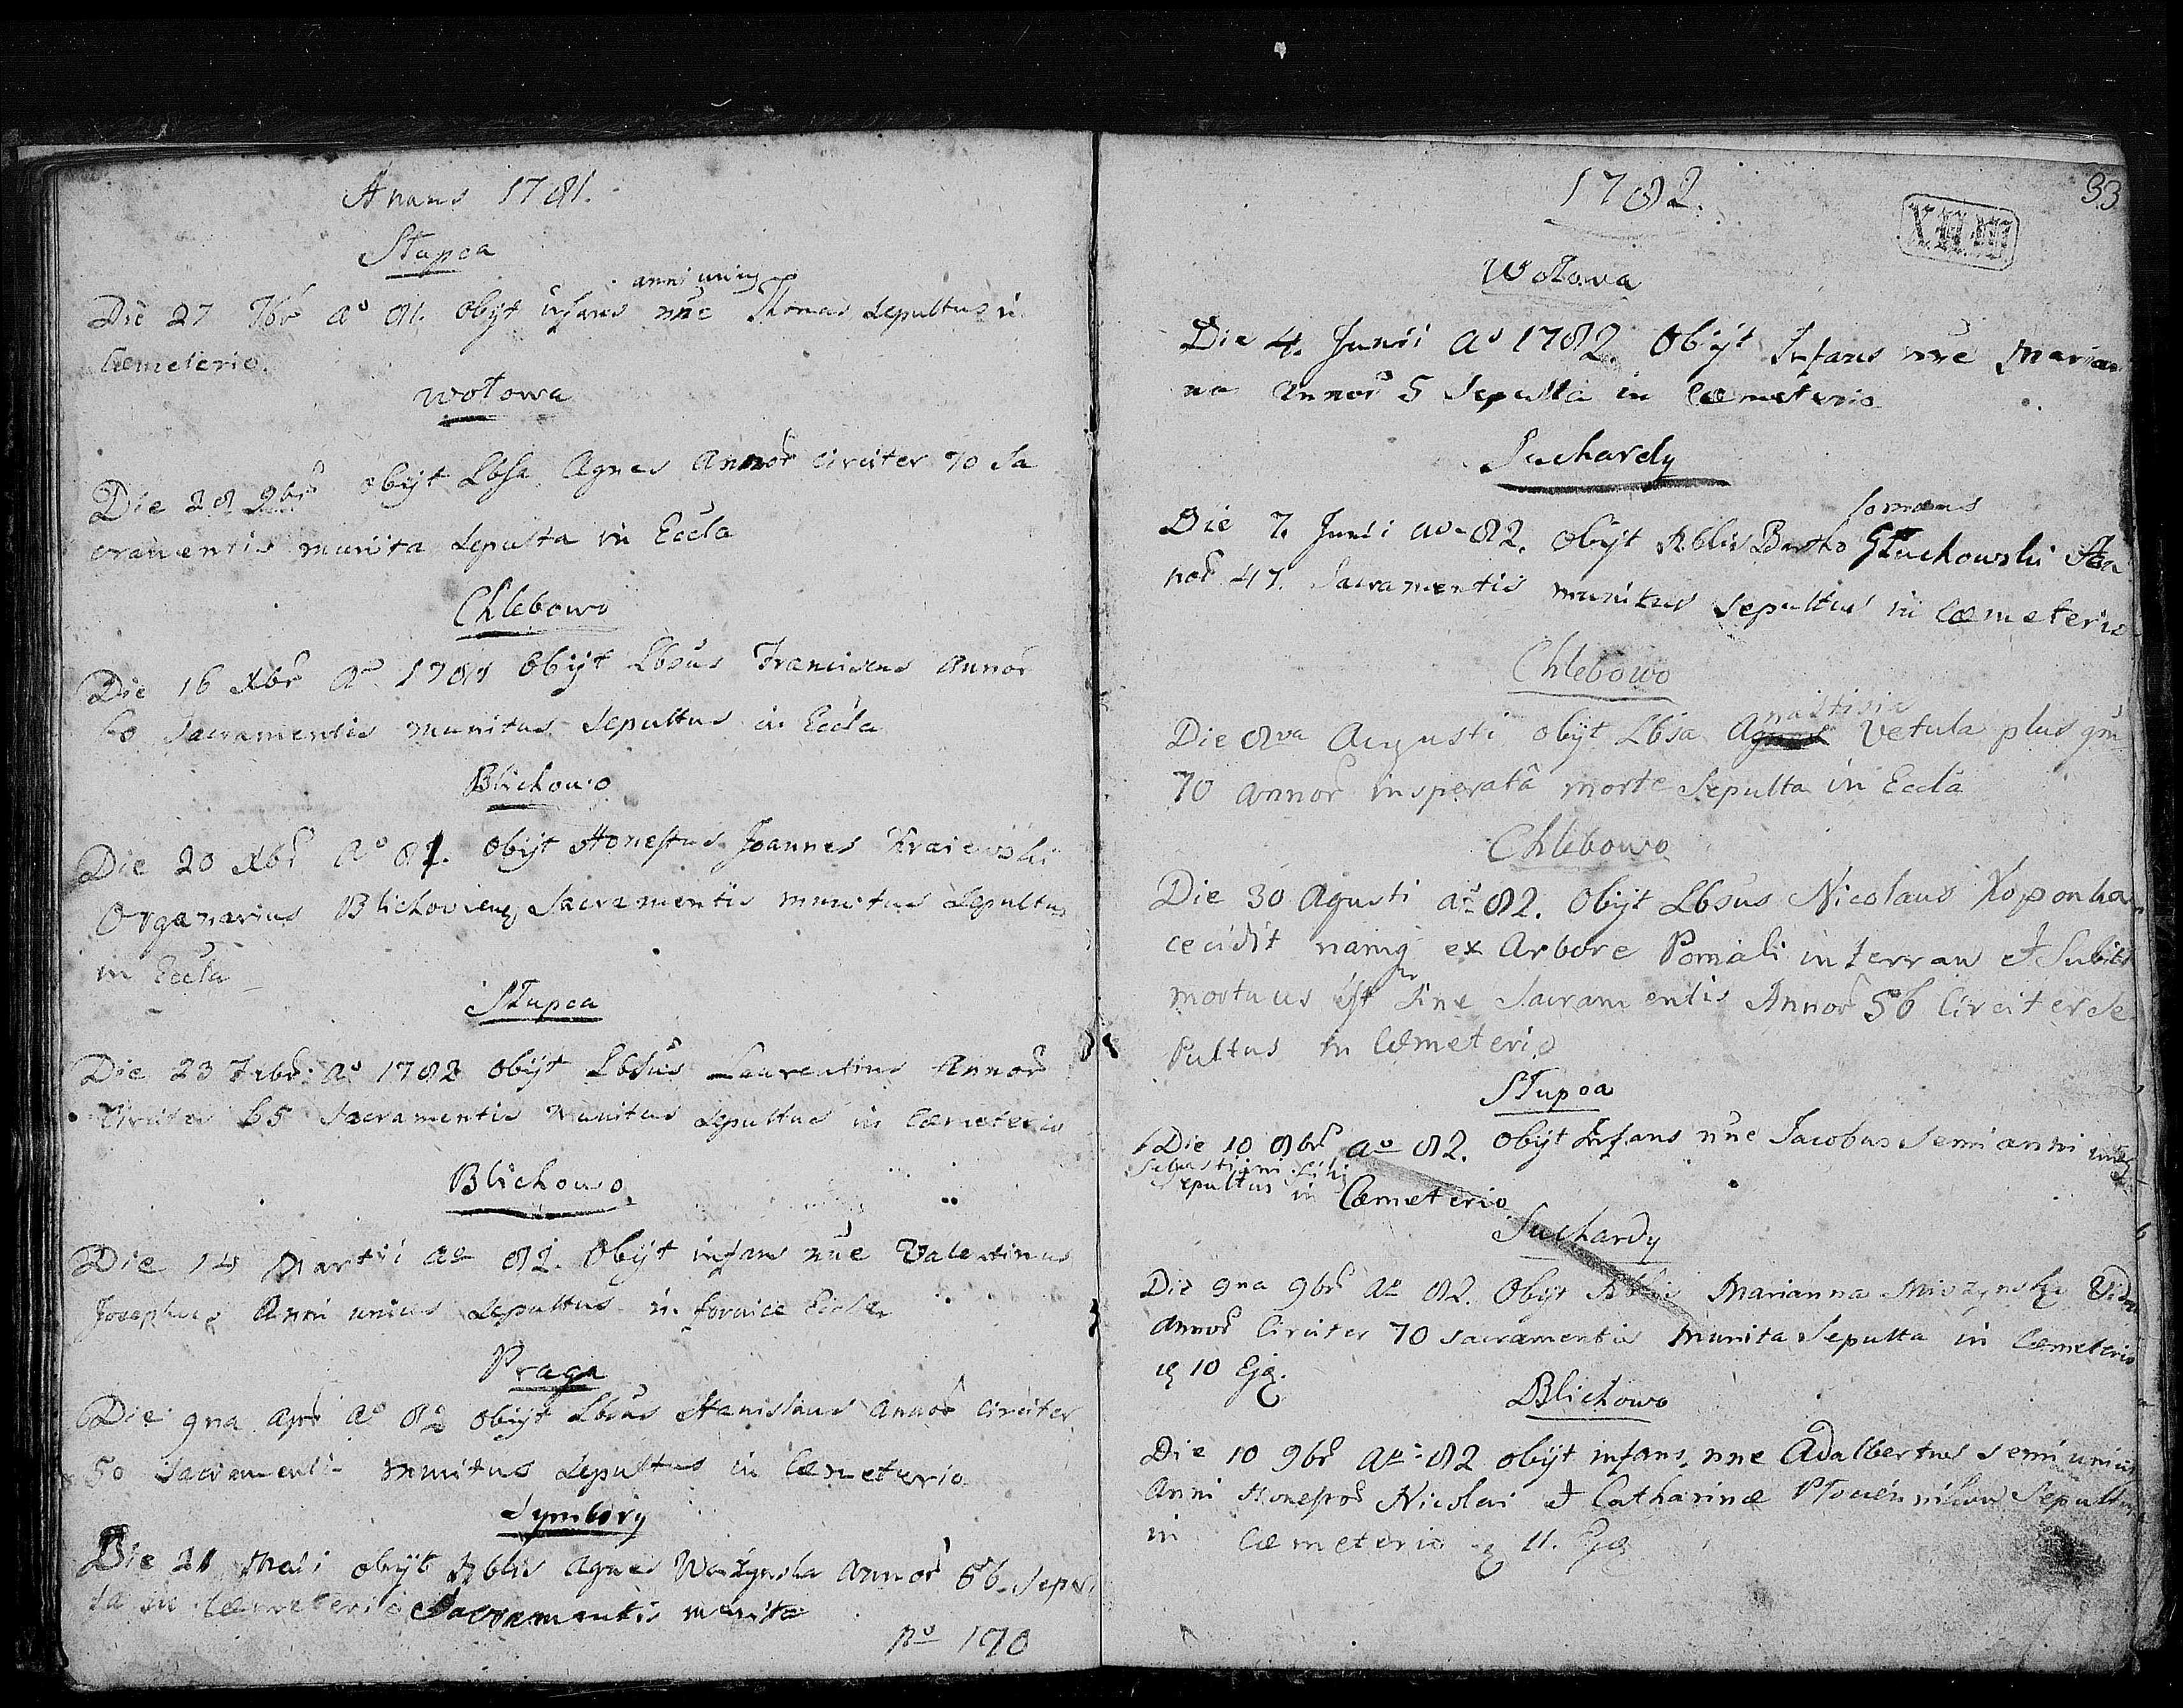 Annus 1781.
Stupca
anni unius
Die 27 7br ao 81. obijt infans nne Thomas Sepultus in
Cæmeterio.
Wotowa
Die 28 9br obijt Lbsa Agnes Annor circiter 70 Sa
cramentis munita Sepulta in Eccla
Chlebowo
Die 16 Xbr Ao 1781 Obijt Lbsus Franciscus Annor
60 Sacramentis munitus Sepultus in Eccla
Blichowo
Die 20 Xbr Ao 81. obijt Honestus Joannes Kraiewski
Organarius Blichovien Sacramentis munitus Sepultus
in Eccla
Stupca
Die 23 Febr: Ao 1782 obijt Lbsus Laurentius Annor
Circiter 65 Sacramentis munitus Sepultus in Cæmeterio
Blichowo
Die 14 Martii ao 82. Obijt infans nne Valentinus
Josephus Anni unius Sepultus in fornice Eccle
Praga
Die 9na Apr Ao 82 obijt Lbsus Stanislaus Annor circiter
50 Sacramenti munitus Sepultus in Cæmeterio
Symbory
Die 21 Maii obijt Nblis Agnes Annor 56 Sepul
ta in Cæmeterio Sacramentis munita
no 170
1782.
33
Wotowa
Die 4. Junii ao 1782. Obijt Infans nne Marian
na Annor 5 Sepulta in Cæmeterio
Suchardy
lomæus
Die 7. Junii ao 82. Obijt Nblis Bartho Głuchowski An
nor 47. Sacramentis munitus Sepultus in Cæmeterio
Chlebowo
nastisia
Die 8va Augusti obijt Lbsa Agnes Vetula plus qm
70 annor insperatâ morte Sepulta in Eccla
Chlebowo
Die 30 Agusti ao 82. Obijt Lbsus Nicolaus Koponka
cecidit namq ex Arbore Pomali in terram et Subito
mortuus est Sine Sacramentis Annor 56 Circiter Se
pultus in Cæmeterio
Stupca
Die 10 8br ao 82. Obijt Infans nne Jacobus Semi anni unius
Sebastiani filij
Sepultus in Cæmeterio
Suchardy
Die 9na 9br Ao 82. Obijt Nblis Marianna Vidua
Annor Circiter 70 Sacramentis munita Sepulta in Cæmeterio
10 Ejq.
Blichowo
Die 10 9br Ao 82 obijt infans nne Adalbertus Semi unius
Anni Honestor Nicolai et Catharinæ Sepultus
in Cæmeterio 11. Ejq